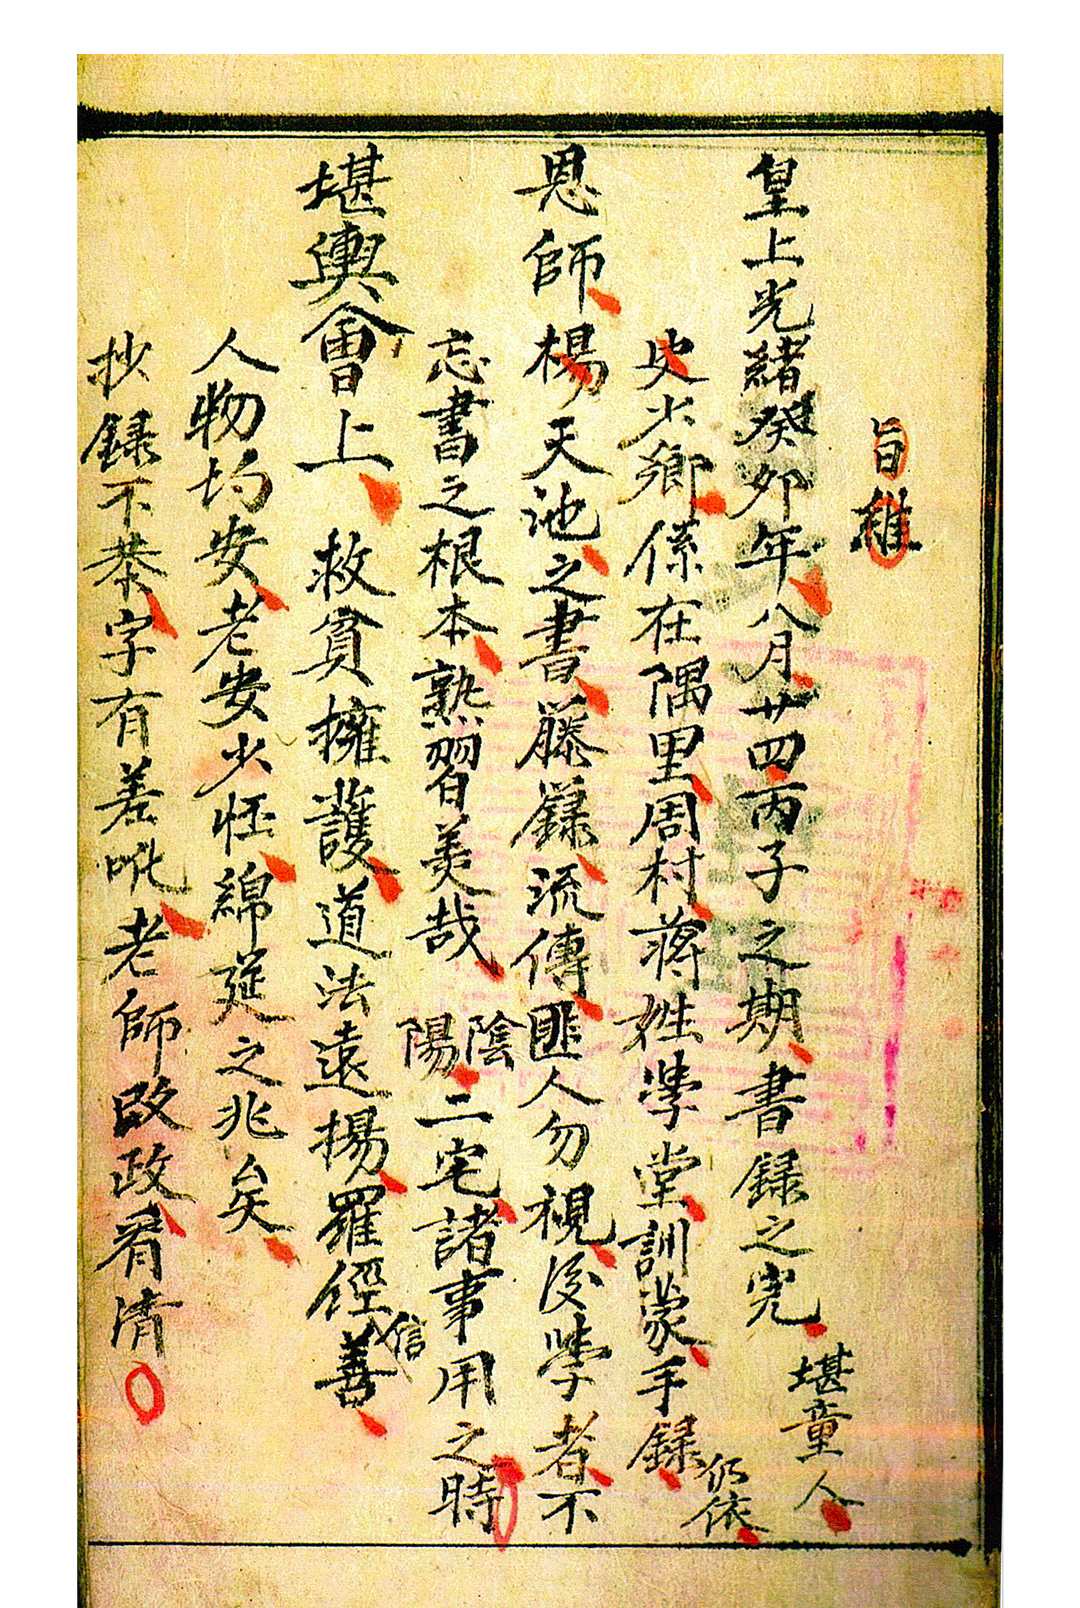 旨維
皇上光緒癸卯年八月廿四丙子之期書錄之完堪童人
史少卿係在隅里周村蔣姓學堂訓蒙手録仍依
恩師楊天池之書藤錄流傳匪人勿視後學者不
忘書之根本熟習美哉陰陽二宅諸事用之時
堪輿會上救貧擁護道法遠揚羅經信善
人物均安老安少怪綿延之兆矣
抄録不恭字有差吪老師改政看清